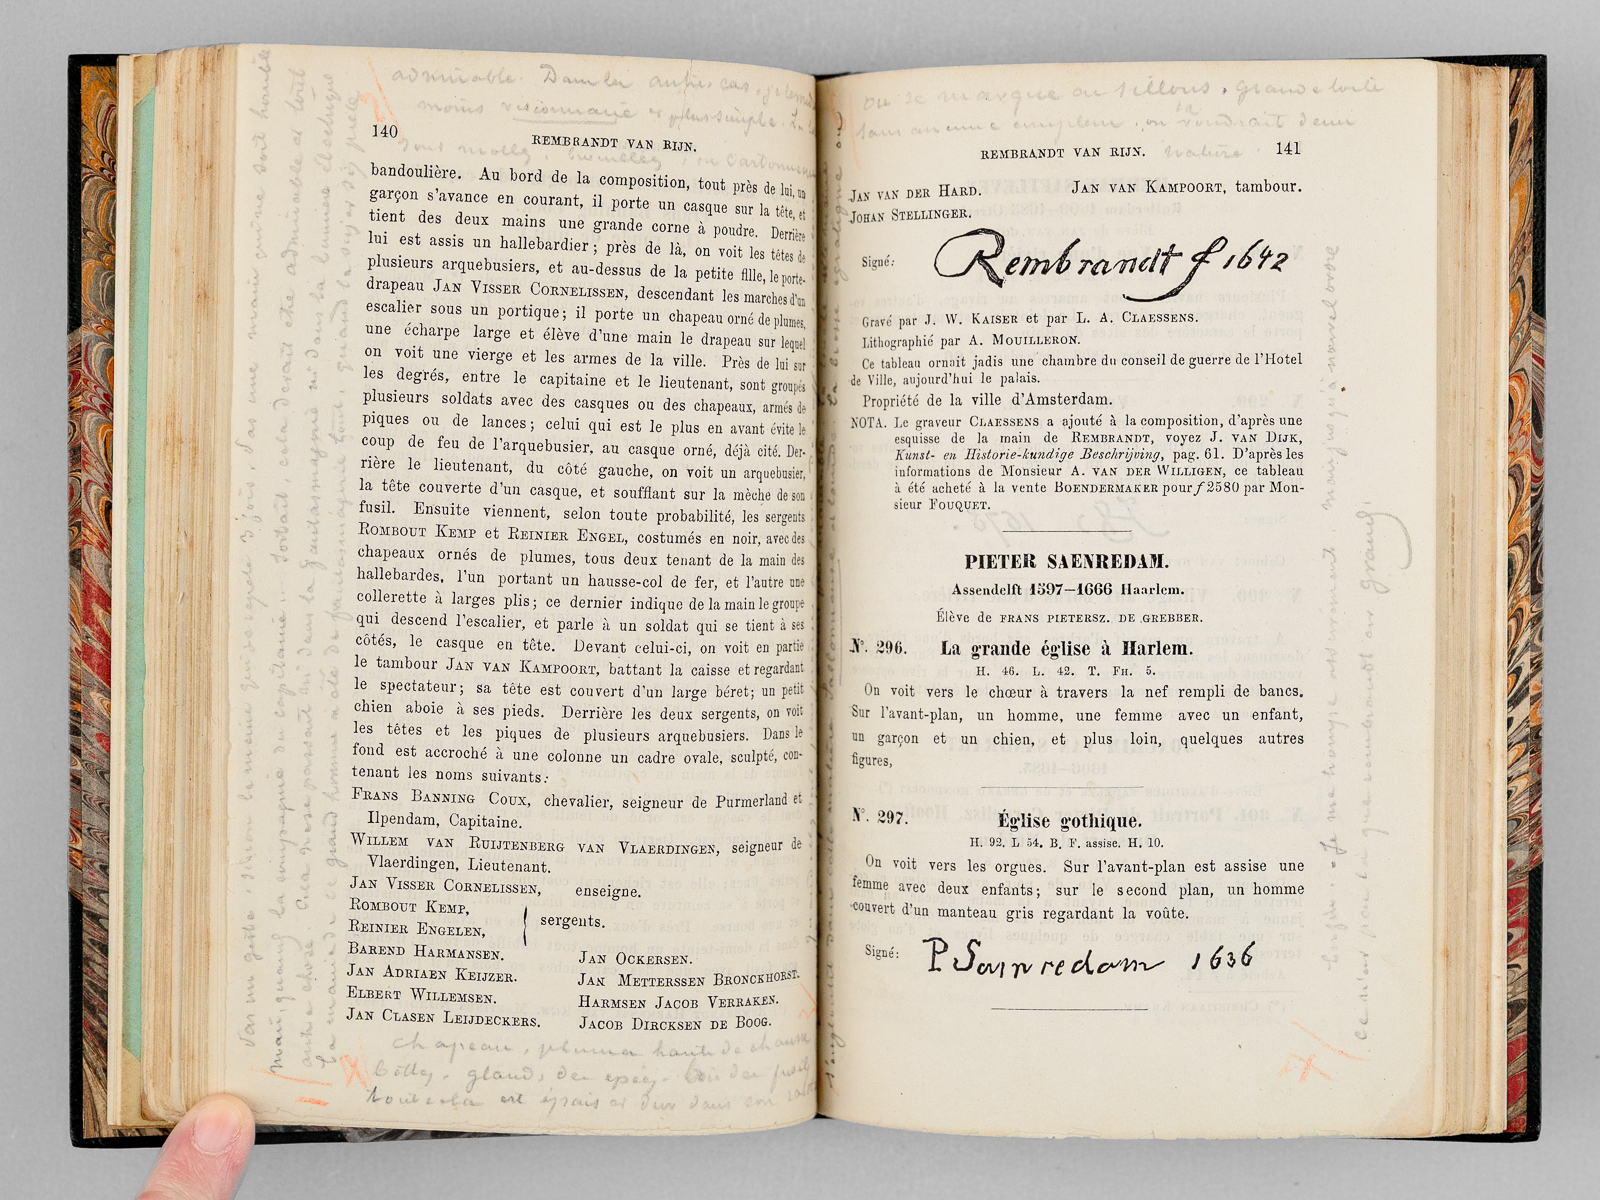 admirable. Dans les autres cas,
moins visionnaire et plus simple.
140
REMBRANDT VAN RIJN.
bandoulière. Au bord de la composition, tout près de lui, un
garçon s'avance en courant, il porte un casque sur la tête, et
tient des deux mains une grande corne à poudre. Derrière
lui est assis un hallebardier; près de là, on voit les têtes de
plusieurs arquebusiers, et au-dessus de la petite fille, le porte-
drapeau JAN VISSER CORNELISSEN, descendant les marches d'un
escalier sous un portique; il porte un chapeau orné de plumes,
une écharpe large et élève d'une main le drapeau sur lequel
on voit une vierge et les armes de la ville. Près de lui sur
les degrés, entre le capitaine et le lieutenant, sont groupés
plusieurs soldats avec des casques ou des chapeaux, armés de
piques ou de lances; celui qui est le plus en avant évite le
coup de feu de l'arquebusier, au casque orné, déjà cité. Der-
rière le lieutenant, du côté gauche, on voit un arquebusier,
la tête couverte d'un casque, et soufflant sur la mèche de son
fusil. Ensuite viennent, selon toute probabilité, les sergents
ROMBOUT KEMP et REINIER ENGEL, costumés en noir, avec des
chapeaux ornés de plumes, tous deux tenant de la main des
hallebardes, l'un portant un hausse-col de fer, et l'autre une
collerette à larges plis; ce dernier indique de la main le groupe
qui descend l'escalier, et parle à un soldat qui se tient à ses
côtés, le casque en tête. Devant celui-ci, on voit en partie
le tambour JAN VAN KAMPOORT, battant la caisse et regardant
le spectateur; sa tête est couvert d'un large béret; un petit
chien aboie à ses pieds. Derrière les deux sergents, on voit
les têtes et les piques de plusieurs arquebusiers. Dans le
fond est accroché à une colonne un cadre ovale, sculpté, con-
tenant les noms suivants:
FRANS BANNING COUX, chevalier, seigneur de Purmerland et
Ilpendam, Capitaine.
WILLEM VAN RUIJTENBERG VAN VLAERDINGEN, seigneur de
Vlaerdingen, Lieutenant.
JAN VISSER CORNELISSEN, enseigne.
ROMBOUT KEMP,
REINIER ENGELEN, sergents.
BAREND HARMANSEN. JAN OCKERSEN.
JAN ADRIAEN KEIJZER. JAN METTERSSEN BRONCKHORST.
ELBERT WILLEMSEN. HARMSEN JACOB VERRAKEN.
JAN CLASEN LEIJDECKERS. JACOB DIRCKSEN DE BOOG.
chapeau, plumes haut de chausse
bottes, glands, des
tout cela est épais et dur dans son
ou se marque au sillons, grande toile
sans aucune ampleur, on la voudrait d'une
nature
REMBRANDT VAN RIJN.
141
JAN VAN DER HARD. JAN VAN KAMPOORT, tambour.
JOHAN STELLINGER.
Signé: Rembrandt f 1642
Gravé par J. W. KAISER et par L. A. CLAESSENS.
Lithographié par A. MOUILLERON.
Ce tableau ornait jadis une chambre du conseil de guerre de l'Hotel
de Ville, aujourd'hui le palais.
Propriété de la ville d'Amsterdam.
NOTA. Le graveur CLAESSENS a ajouté à la composition, d'après une
esquisse de la main de REMBRANDT, voyez J. VAN DIJK,
Kunst- en Historie-kundige Beschrijving, pag. 61. D'après les
informations de Monsieur A. VAN DER WILLIGEN, ce tableau
à été acheté à la vente BOENDERMAKER pour f 2580 par Mon-
sieur FOUQUET.
PIETER SAENREDAM.
Assendelft 1597–1666 Haarlem.
Élève de FRANS PIETERSZ. DE GREBBER.
N°. 296. La grande église à Harlem.
H. 46. L. 42. T. FH. 5.
On voit vers le chœur à travers la nef rempli de bancs.
Sur l'avant-plan, un homme, une femme avec un enfant,
un garçon et un chien, et plus loin, quelques autres
figures,
N°. 297. Église gothique.
H. 92. L 54. B. F. assise. H. 10.
On voit vers les orgues. Sur l'avant-plan est assise une
femme avec deux enfants; sur le second plan, un homme
couvert d'un manteau gris regardant la voûte.
Signé: P Sainredam 1636